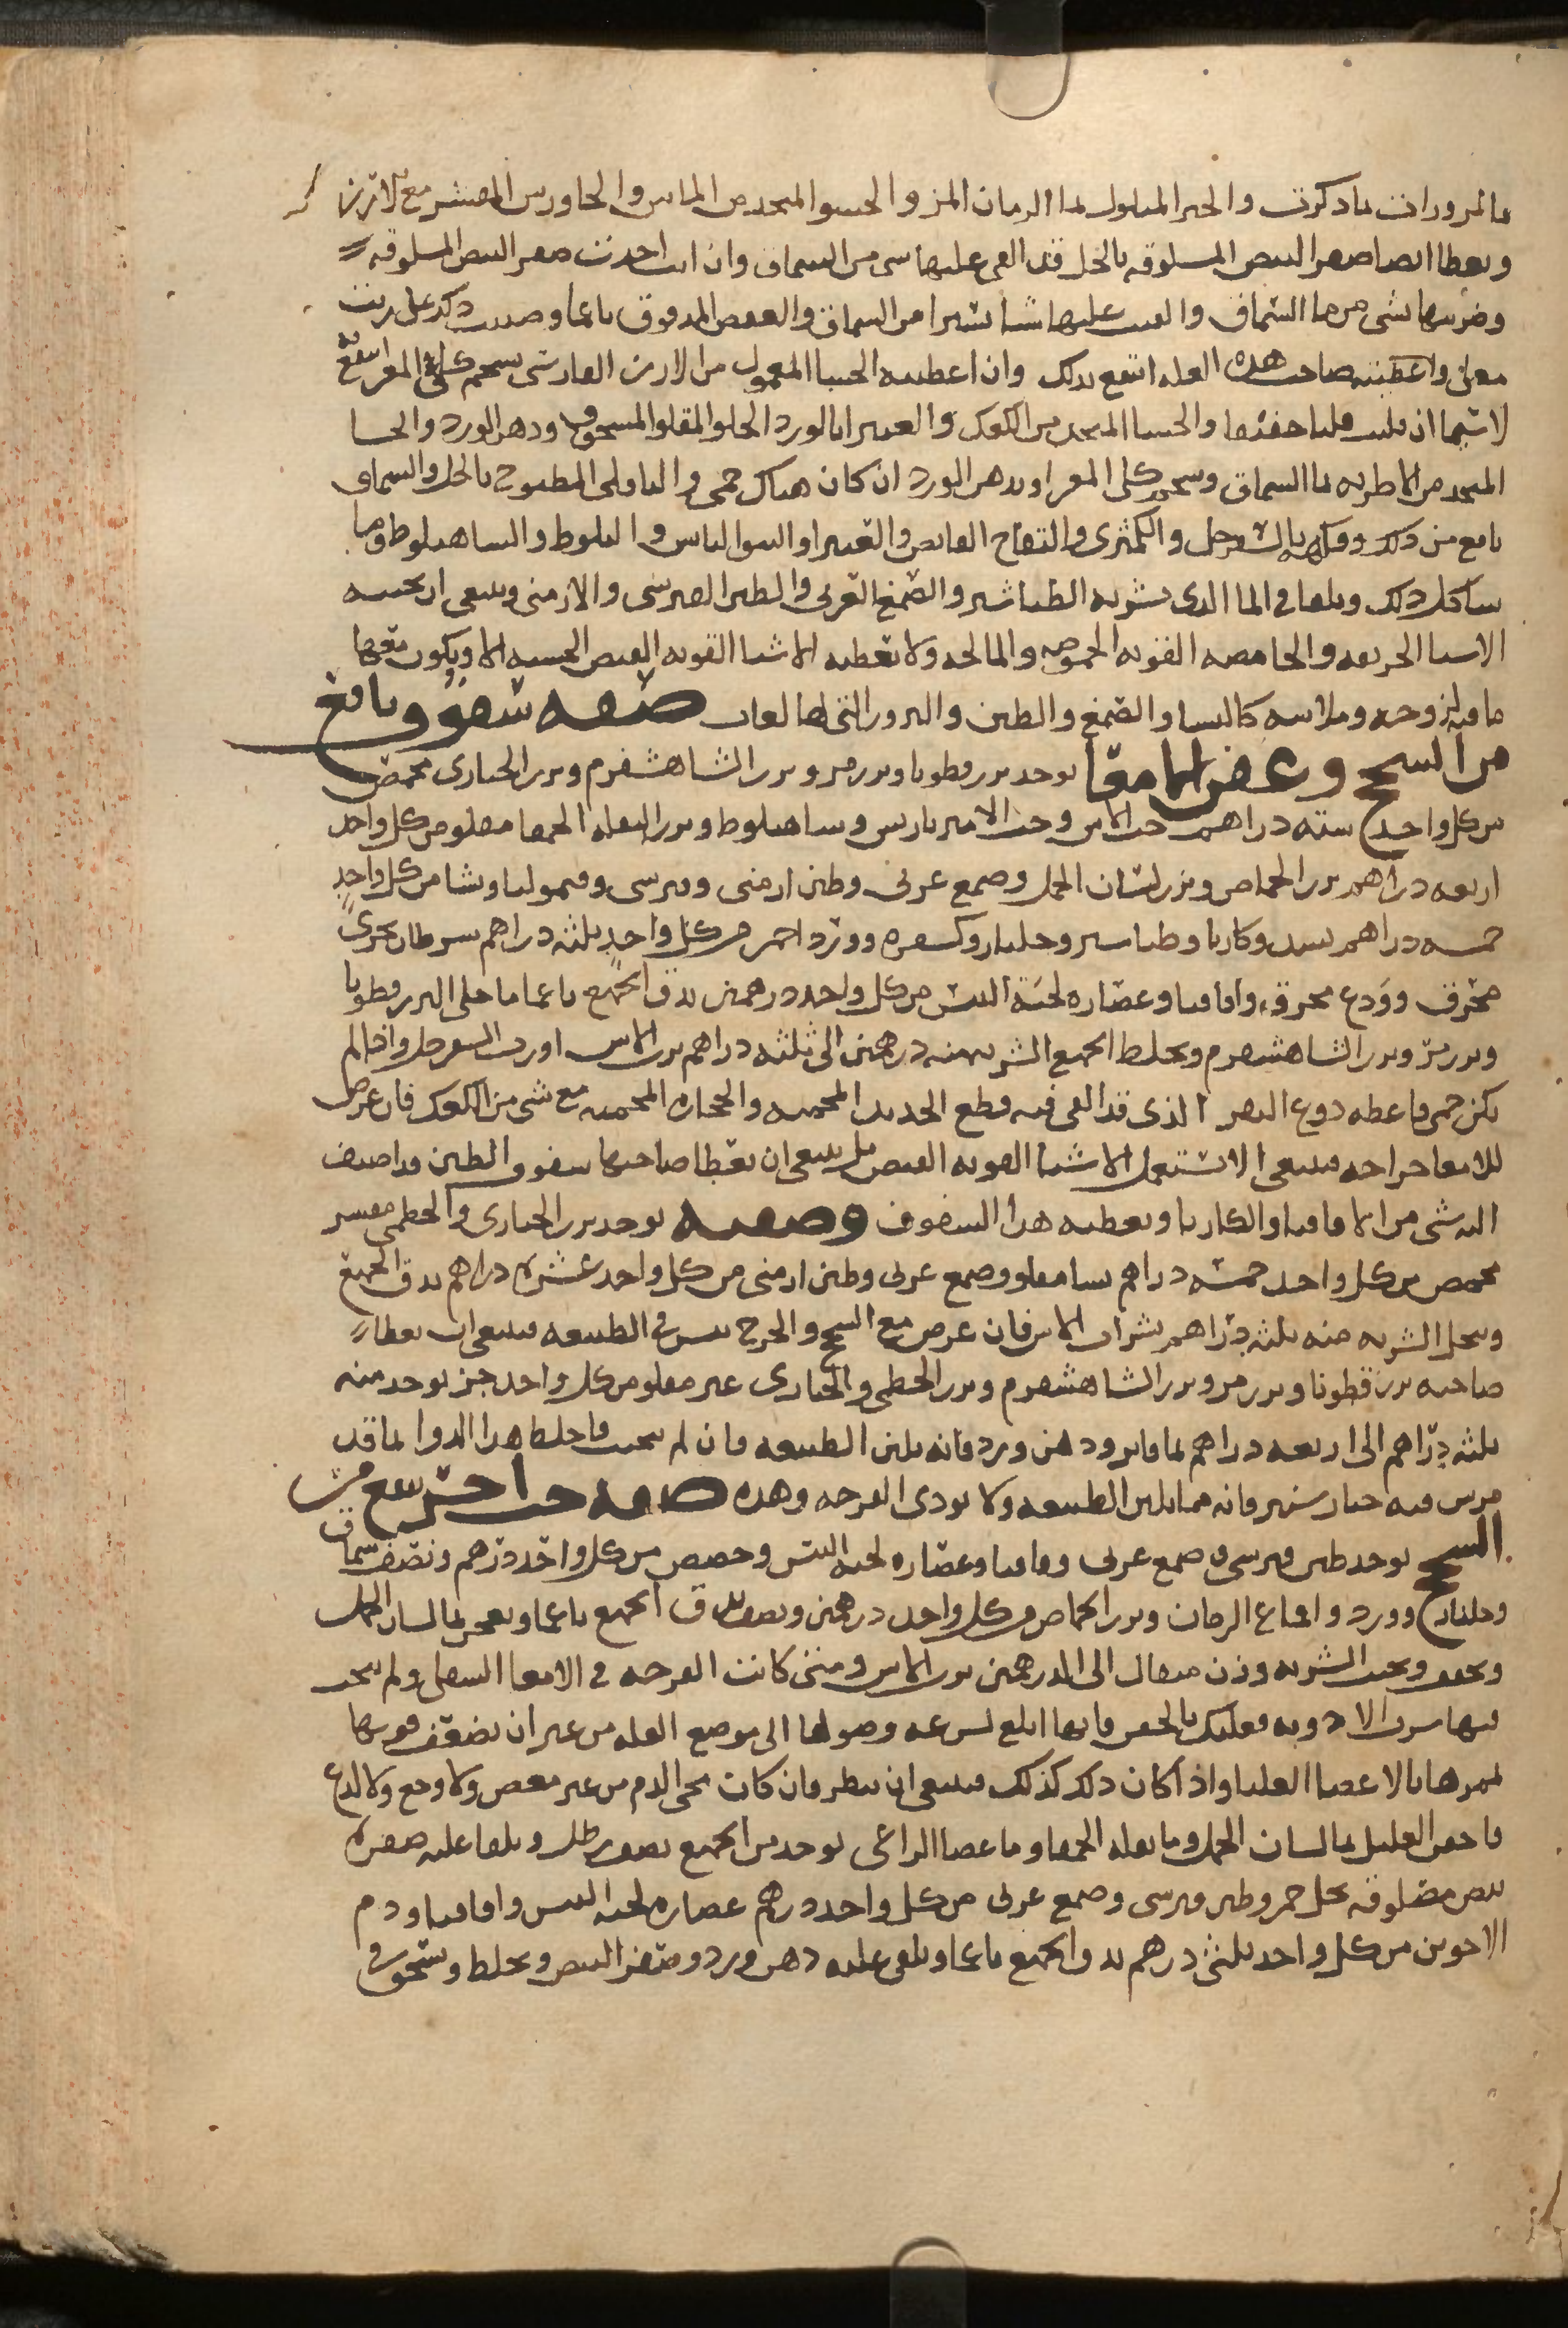 بالمزورات ما ذكرت والخبز المبلول بماء الرمان المز والحسو المتخذ من الماش والجاورس المقشر مع الارز
ويعطا ايضا صفر البيض المسلوقه بالخل قد القى عليها شى من السماق وان انت اخذت صفر البيض المسلوقه
وضربتها بشى من ماء السماق والقيت عليها شيا يسيرا من السماق والعفص المدقوق ناعما وصببت ذلك على زيت
مغلى واعطيته صاحب هذه العله انتفع بذلك وان اعطيته الحسا المعمول من الارز الفارسى بشحم كلى المعز انتفع به
لا سيما ان قليت قليا خفيفا والحسا المتخذ من الكعك والغبيرا بالورد الحلو المقلو المسحوق ودهن الورد والحسا
المتخذ من الاطريه بماء السماق وشحم كلى المعز او بدهن الورد ان كان هناك حمى والباقلى المطبوخ بالخل والسماق
نافع من ذلك وفكهه بالسفرجل والكمثرى والتفاح القابض والغبيرا والنبق اليابس والبلوط والشاهبلوط وما
شاكل ذلك ويلقا فى الما الذى يشربه الطباشير والصمغ العربى والطين القبرسى والارمنى وينبغى ان يجنبه
الاشيا الحريفه والحامضه القويه الحموضه والمالحه ولا تعطيه الاشيا القويه القبض الخشنه الا ويكون معها
ما فيه لزوجه وملاسه كالنشا والصمغ والطين والبزور التى لها لعاب صفه سفوف نافع
من السحج وعفن الامعا يوخذ بزر قطونا وبزر مر وبزر الشاهشفرم وبزر الخبازى محمص
من كل واحد سته دراهم حب الاس وحب الامبرباريس وشاهبلوط وبزر البقله الحمقا مقلو من كل واحد
اربعه دراهم بزر الحماض وبزر لسان الحمل وصمغ عربى وطين ارمنى وقبرسى وقيموليا ونشا من كل واحد
خمسه دراهم بسد وكاربا وطباشير وجلنار وكسفره وورد احمر من كل واحد ثلثه دراهم سرطان بحرى
محرق وودع محرق واقاقيا وعصاره لحية التيس من كل واحد درهمين يدق الجميع ناعما ما خلا البزر قطونا
وبزر مر وبزر الشاهشفرم ويخلط الجميع الشربه منه درهمين الى ثلثه دراهم برب الاس او رب السفرجل واذا لم
يكن حمى فاعطه دوغ البقر الذى قد القى فيه قطع الحديد المحميه والحجاره المحميه مع شى من الكعك فان عرض
للامعا جراحه فينبغى الا تستعمل الاشيا القويه القبض بل ينبغى ان يعطا صاحبها سفوف الطين قد اضيف
اليه شى من الاقاقيا والكاربا ويعطيه هذا السفوف وصفته يوخذ بزر الخبازى والخطمى مقشر
محمص من كل واحد خمسه دراهم نشا مقلو وصمغ عربى وطين ارمنى من كل واحد عشره دراهم يدق الجميع
وينخل الشربه منه ثلثه دراهم بشراب الاس فان عرض مع السحج والجرح يبس فى الطبيعه فينبغى ان يعطا
صاحبه بزر قطونا وبزر مر وبزر الشاهشفرم وبزر الخطمى والخبازى غير مقلو من كل واحد جز يوخذ منه
ثلثه دراهم الى اربعه دراهم بما فاتر ودهن ورد فانه يلين الطبيعه فان لم يجب فاخلط هذا الدوا بما قد
مرس فيه خيار شنبر فانه مما يلين الطبيعه ولا يوذى القرحه وهذه صفه حب اخر ينفع من
السحج يوخذ طين قبرسى وصمغ عربى وقاقيا وعصاره لحية التيس وحضض من كل واحد درهم ونصف سماق
وجلنار وورد واقماع الرمان وبزر الحماض من كل واحد درهمين ونصف يدق الجميع ناعما ويعجن بما لسان الحمل
ويجفف ويحبب الشربه وزن مثقال الى الدرهمين برب الاس ومتى كانت القرحه فى الامعا السفلى ولم ينجب
فيها شرب الادويه فعليك بالحقن فانها ابلغ لسرعه وصولها الى موضع العله من غير ان تضعف قوتها
لممرها بالاعضا العليا واذا كان ذلك كذلك فينبغى ان ينظر فان كان مجى الدم من غير مغص ولا وجع ولا لذع
فاحقن العليل بما لسان الحمل وما بقله الحمقا وما عصا الراعى يوخذ من الجميع نصف رطل ويلقا عليه صفره
بيض مصلوقه بخل خمر وطين قبرسى وصمغ عربى من كل واحد درهم عصاره لحيه التيس واقاقيا ودم
الاخوين من كل واحد ثلثى درهم يدق الجميع ناعما ويلقى عليه دهن ورد وصفر البيض ويخلط ويسحق فى